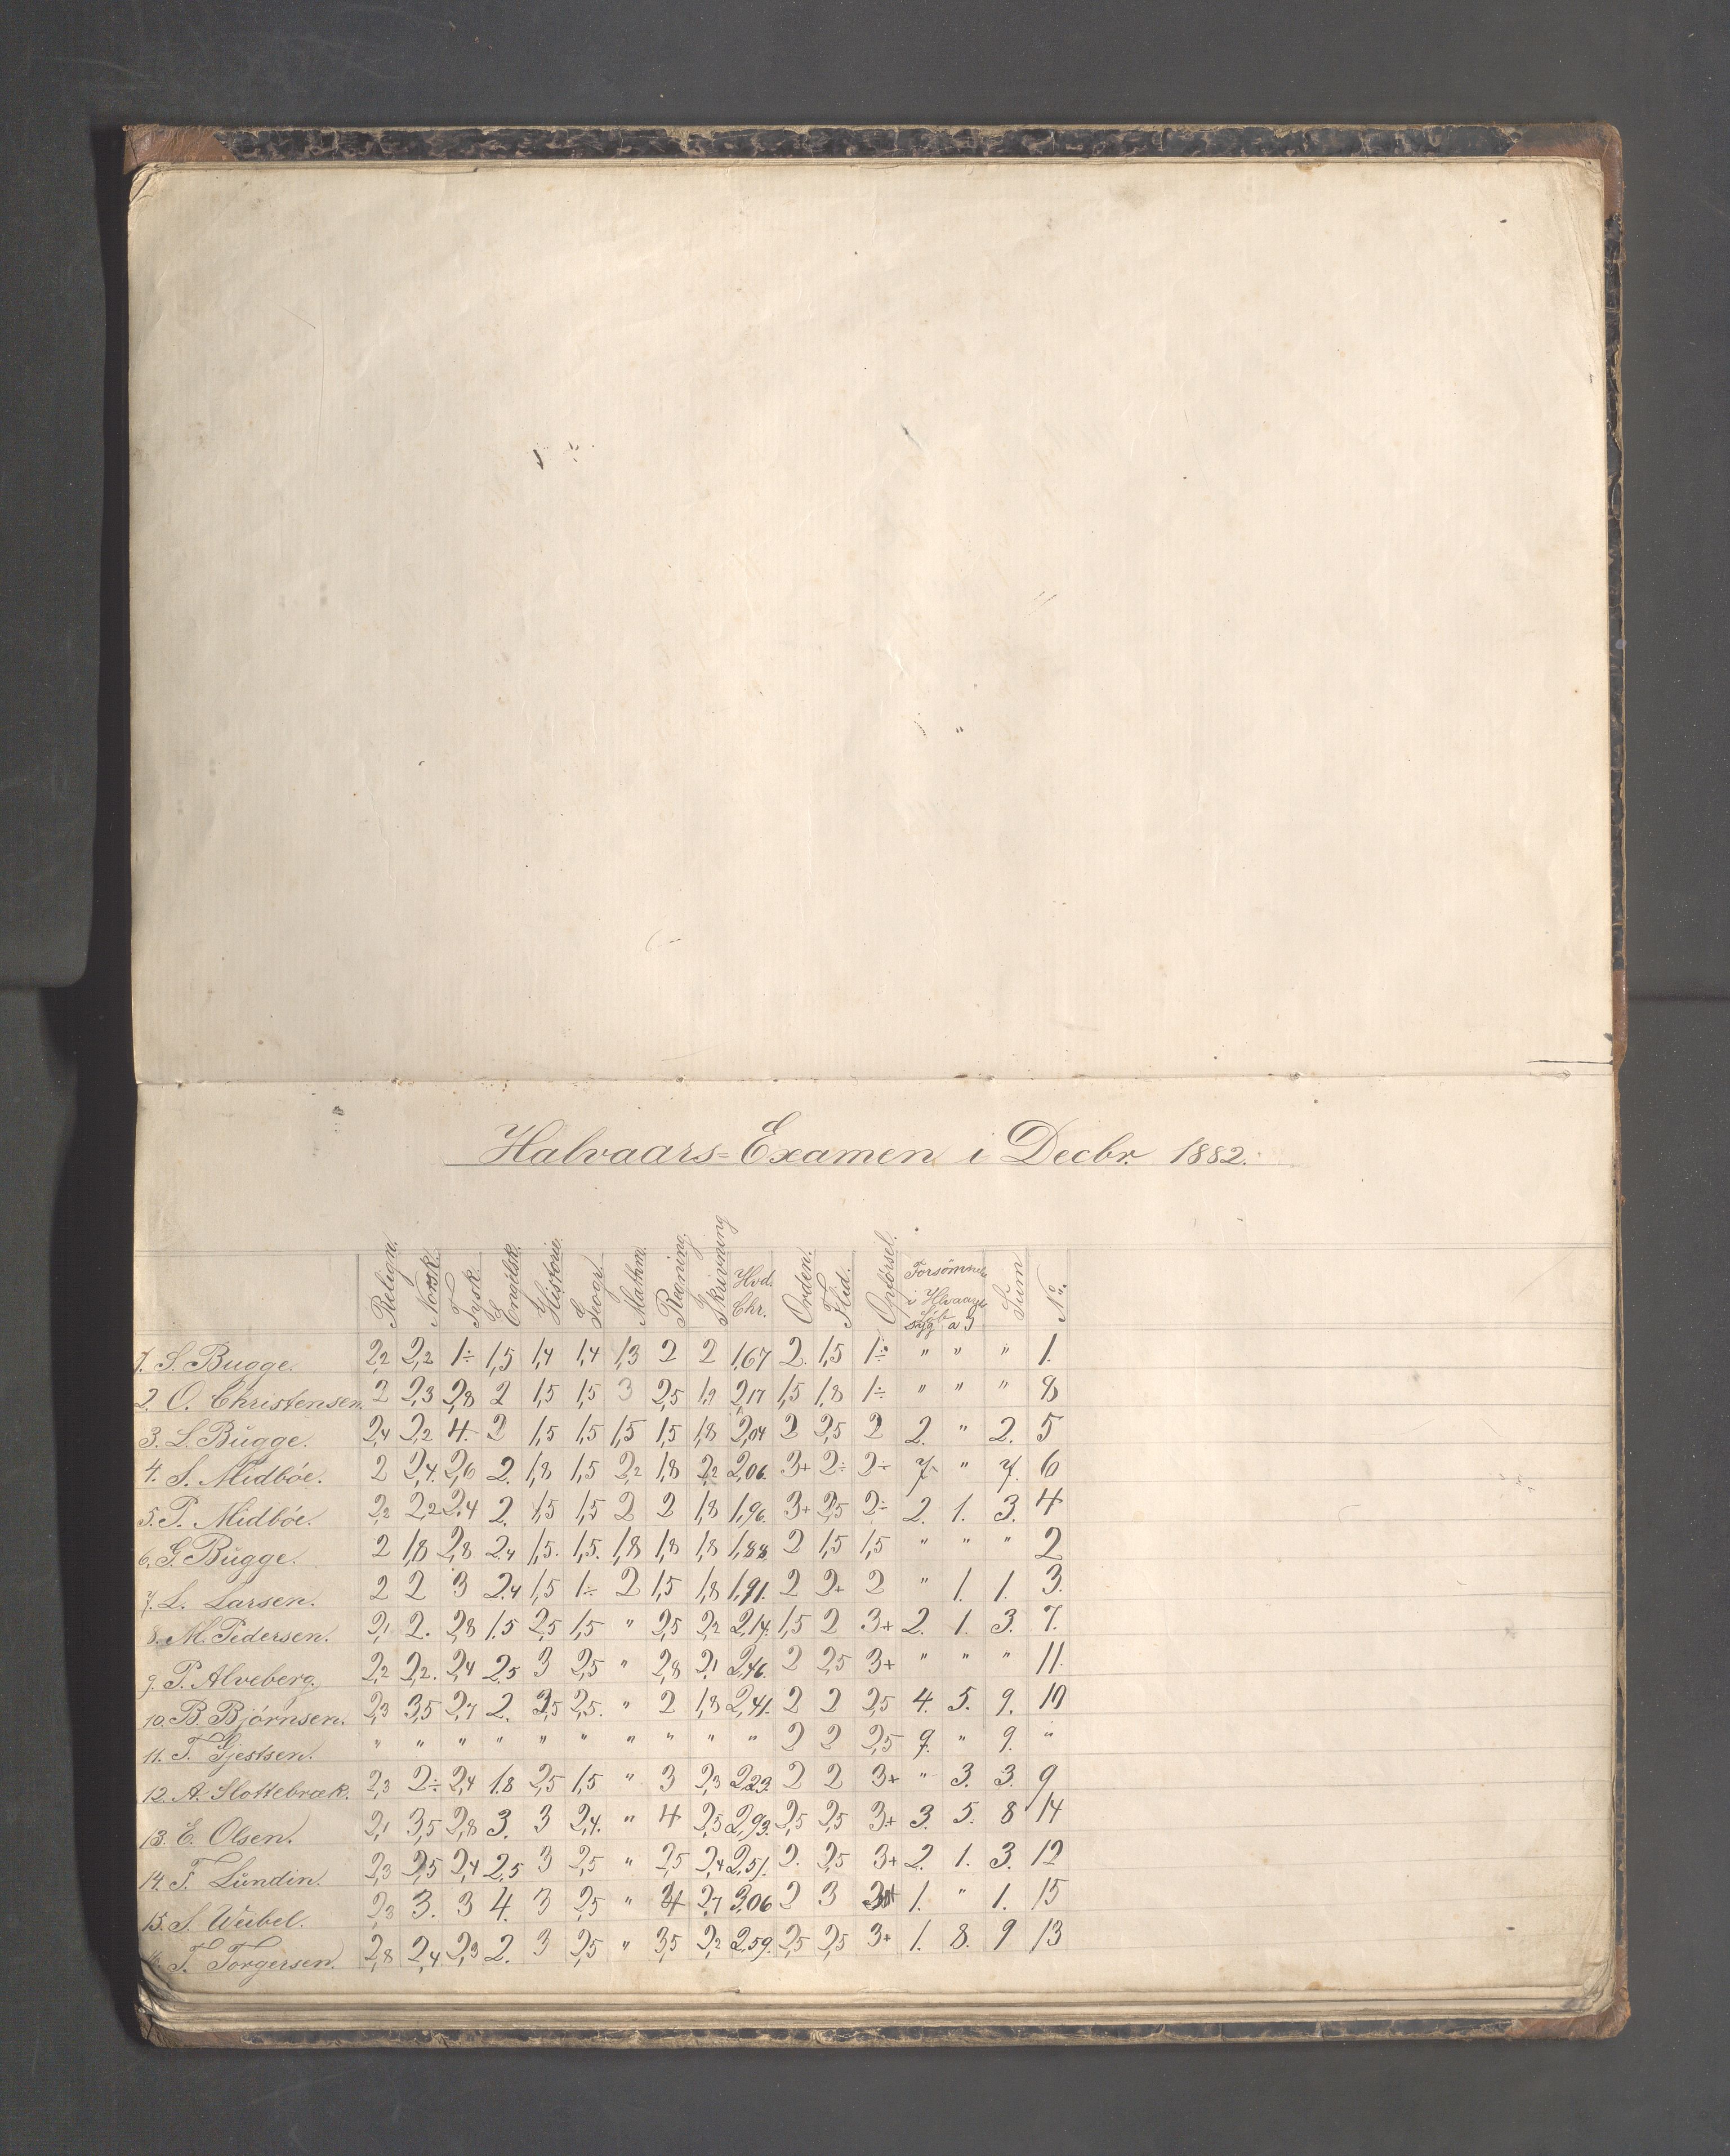 Halvaars-Examen i Decbr. 1882.
Relign. Norsk. Tysk. Engelsk. Historie. Geogr. Mathm. Regning Skrivning Hvd. Chr. Orden. Flid. Opførsel. Forsømmels i Hlvaarets Løb syg a J Sum No.
1. S. Bugge. 2,2 2,2 1÷ 1,5 1,4 1,4 1,3 2 2 1,67 2. 1,5 1÷ " " " 1.
2. O. Christensen. 2 2,3 2,8 2 1,5 1,5 3 2,5 1,9 2,17 1,5 1,8 1÷ " " " 8
3. L. Bugge. 2,4 2,2 4. 2 1,5 1,5 1,5 1,5 1,8 2,04 2 2,5 2 2. " 2. 5
4. S. Midbøe. 2 2,4. 2,6 2. 1,8 1,5 2,2 1,8 2,2 2,06. 3+ 2÷ 2÷ 7. " 7. 6
5. P. Midbøe. 2,2 2,2 2,4 2. 1,5 1,5 2 2 1,8 1,96. 3+ 2,5 2÷ 2. 1. 3. 4
6. G. Bugge. 2 1,8 2,8 2,4 1,5. 1,5. 1,8 1,8 1,8 1,88 2 1,5 1,5 " " " 2
7. L. Larsen. 2 2 3 2,4 1,5 1÷ 2 1,5 1,8 1,91. 2 2+ 2 " 1. 1. 3.
8. M. Pedersen. 2,1 2. 2,8 1.5 2,5 1,5 " 2,5 2,2 2,14. 1,5 2 3+ 2. 1. 3. 7.
9. P. Alveberg. 2,2 2,2. 2,4 2,5 3 2,5 " 2,8 2,1 2,46. 2 2,5 3+ " " " 11.
10. B. Bjørnsen. 2,3 3,5 2,7 2. 3,5 2,5. " 2 1,8 2,41. 2 2 2,5 4. 5. 9. 10
11. T. Gjestsen. " " " " " " " " " " 2 2 2,5 9. " 9. "
12. A. Slottebræk. 2,3 2÷ 2,4 1.8 2,5 1,5 " 3 2,3 2,23. 2 2 3+ " 3. 3. 9
13. E. Olsen. 2,1 3,5 2,8 3. 3 2,4. " 4 2,5 2,93. 2,5 2,5 3+ 3. 5. 8 14
14. T. Lundin. 2,3 2,5 2,4 2,5 3 2,5 " 2,5 2,4 2,51. 2. 2,5 3+ 2. 1. 3. 12
15. S. Weibel. 2,3 3. 3 4. 3 2,5 " 4 2,7 3,06 2 3 1. " 1. 15
16. T. Torgersen. 2,8 2,4 2,3 2. 3 2,5 " 3,5 2,2 2,59. 2,5 2,5 3+ 1. 8. 9 13